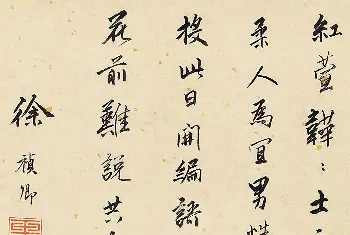 紅萱韡〻士
柔人為宜男
投此日開編語
花前難說共
徐禎卿